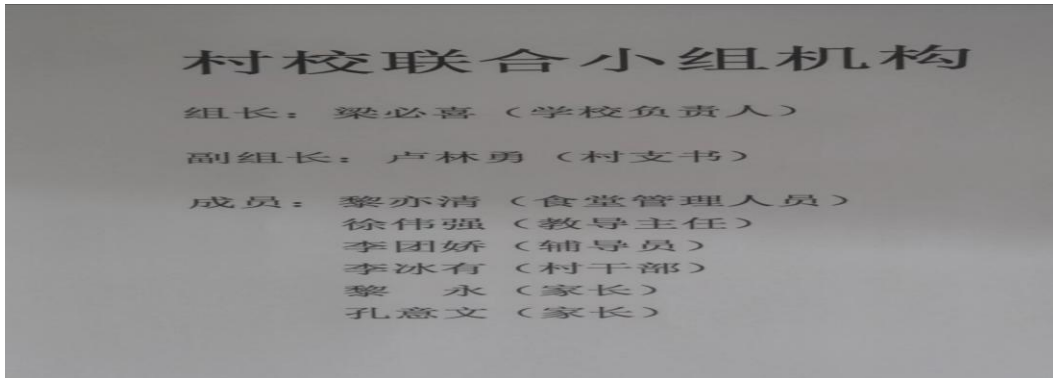 村校联合小组机构
组长：梁必喜（学校负责人）
副组长：卢林勇（村支书）
成员：黎亦清（食堂管理人员）
徐伟强（教导主任）
李团娇（辅导员）
李冰有（村干部）
黎　永（家长）
孔意文（家长）